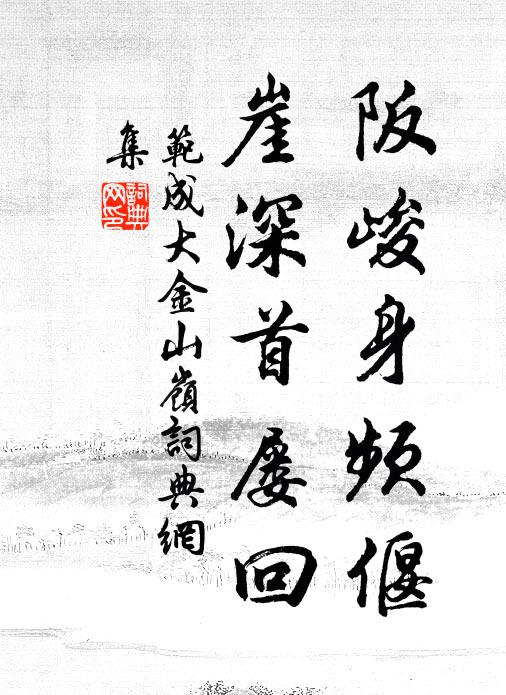 阪峻身頻偃
崖深首屢回
範成大金山嶺詞典網
集
詞典
网印